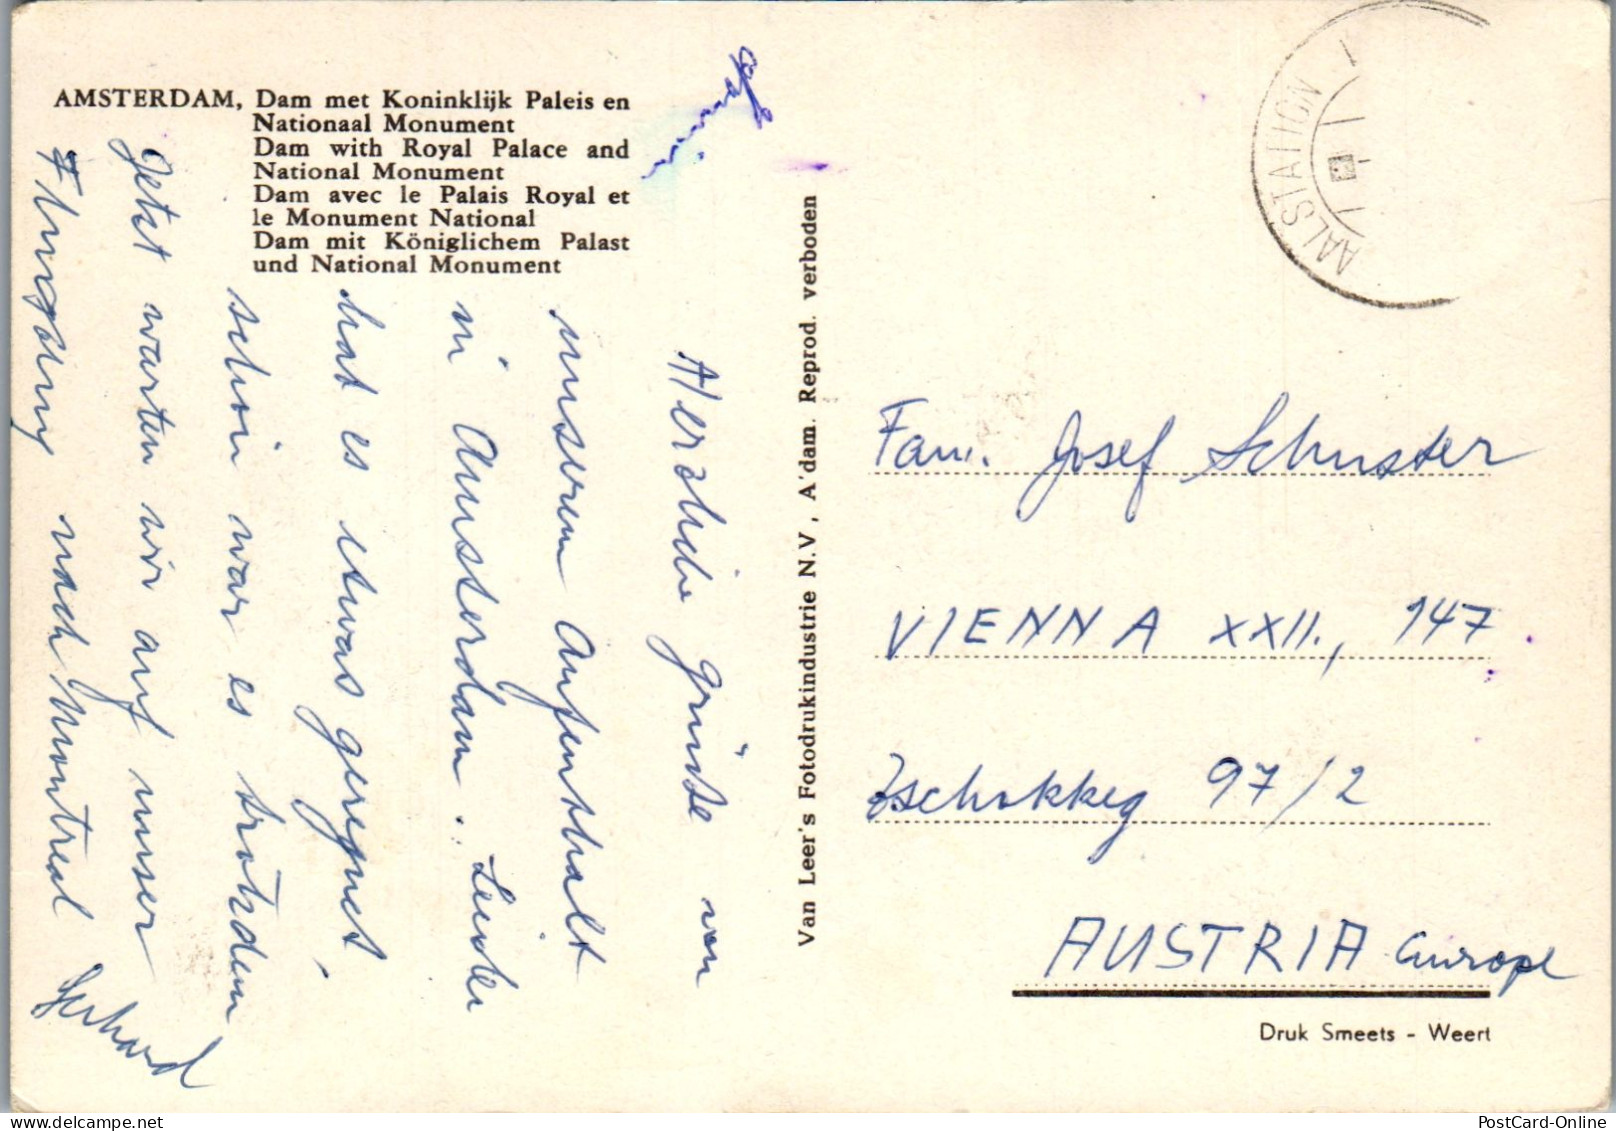 AMSTERDAM, Dam met Koninklijk Paleis en
Nationaal Monument
Dam with Royal Palace and
National Monument
Dam avec le Palais Royal et
le Monument National
Dam mit Königlichem Palast
und National Monument
Herzliche Grüße von
unserem Aufenthalt
in Amsterdam. Leider
hat es etwas geregnet.
schön war es trotzdem
Jetzt warten wir auf unser
Flugzeug nach Montreal
Gerhard
Van Leer's Fotodrukindustrie N.V, A'dam. Reprod. verboden
AALSTATION
Fam. Josef Schuster
VIENNA XXII., 147
Zschokkeg 97/2
AUSTRIA Europe
Druk Smeets - Weert
PostCard-Online